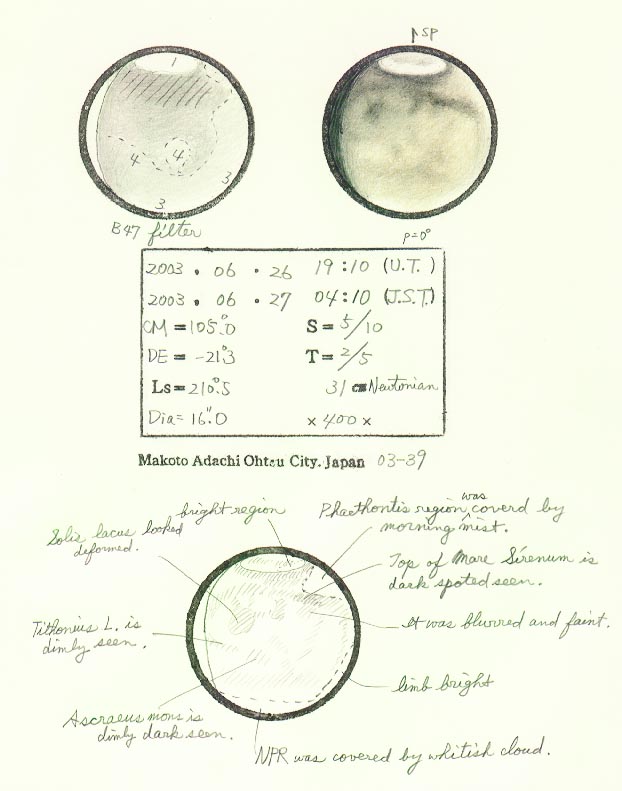 SP
1
4
4
3
3
B47 filter
P=0°
2003 . 06 . 26 19:10 (U.T.)
2003 . 06 . 27 04:10 (J.S.T.)
CM = 105.°0 S = 5/10
DE = -21.°3 T = 2/5
Ls = 210.°5 31 cm Newtonian
Dia = 16."0 × 400 ×
Makoto Adachi Ohtsu City. Japan 03-39
bright region
Phaethontis region was coverd by
morning mist.
Solis lacus looked
deformed.
Top of Mare Sirenum is
dark spoted seen.
It was blurred and faint.
Tithonius L. is
dimly seen.
limb bright
Ascraeus mons is
dimly dark seen.
NPR was covered by whitish cloud.